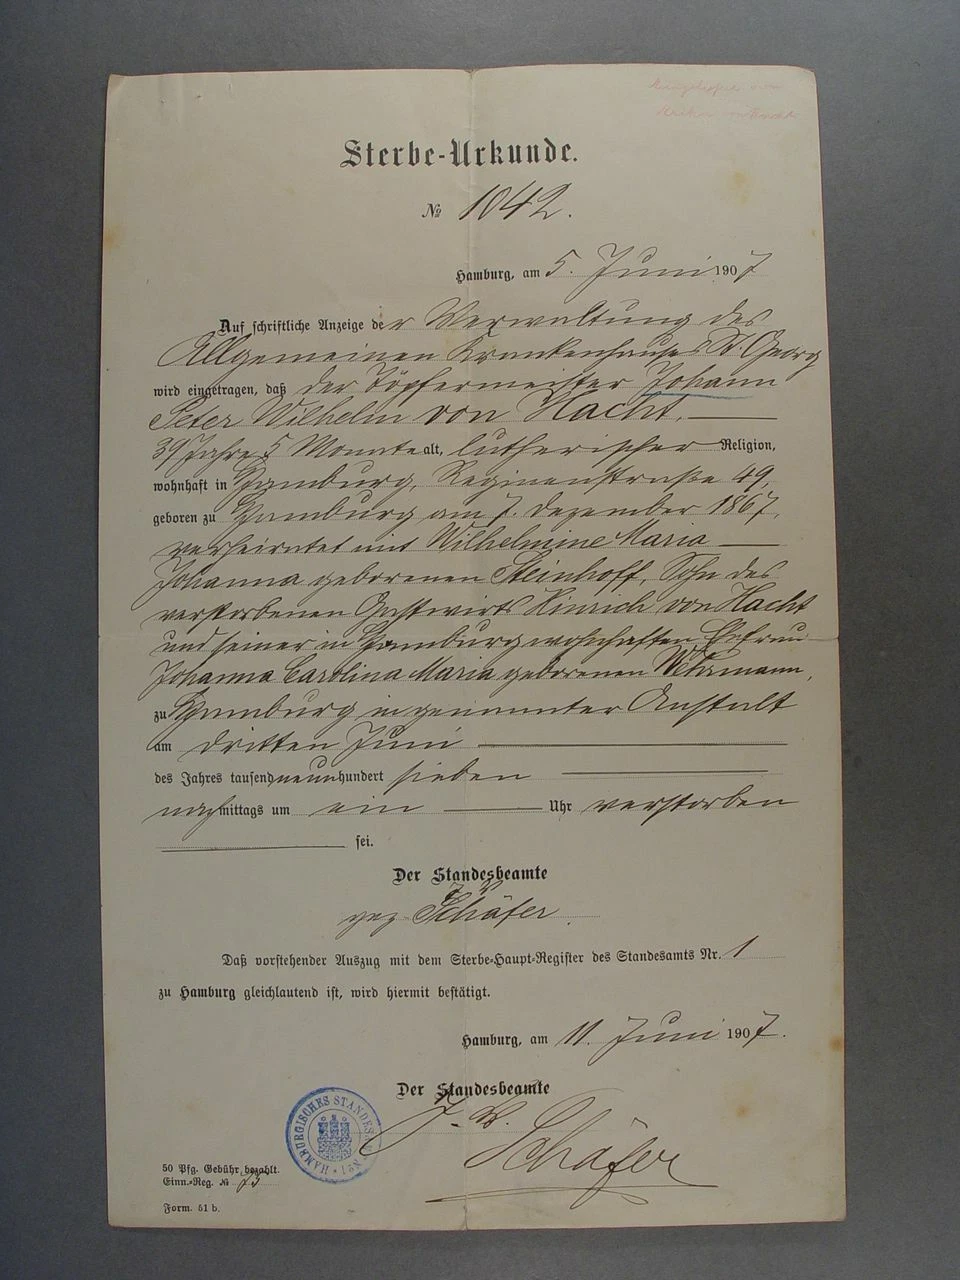 Sterbe-Urkunde.
№ 1042.
Hamburg, am 5. Juni 1907
Auf schriftliche Anzeige der Verwaltung des
Allgemeinen Krankenhauses St. Georg
wird eingetragen, daß der Töpfermeister Johann
Peter Wilhelm von Hacht,
39 Jahre 5 Monate alt, lutherischer Religion,
wohnhaft in Hamburg, Reginenstraße 49,
geboren zu Hamburg am 7. Dezember 1867,
verheiratet mit Wilhelmine Maria
Johanna geborenen Steinhoff, Sohn des
verstorbenen Gastwirts Hinrich von Hacht
und seiner in Hamburg wohnhaften Ehefrau
Johanna Carolina Maria geborenen
zu Hamburg in genannter Anstalt
am dritten Juni
des Jahres tausend neunhundert sieben
nachmittags um ein Uhr verstorben
sei.
Der Standesbeamte
J. V.
gez. Schäfer.
Daß vorstehender Auszug mit dem Sterbe-Haupt-Register des Standesamts Nr. 1
zu Hamburg gleichlautend ist, wird hiermit bestätigt.
Hamburg, am 11. Juni 1907.
Der Standesbeamte
J. V.
Schäfer
HAMBURGISCHES STANDESAMT No 1
50 Pfg. Gebühr bezahlt.
Einn.-Reg. № 73
Form. 51 b.